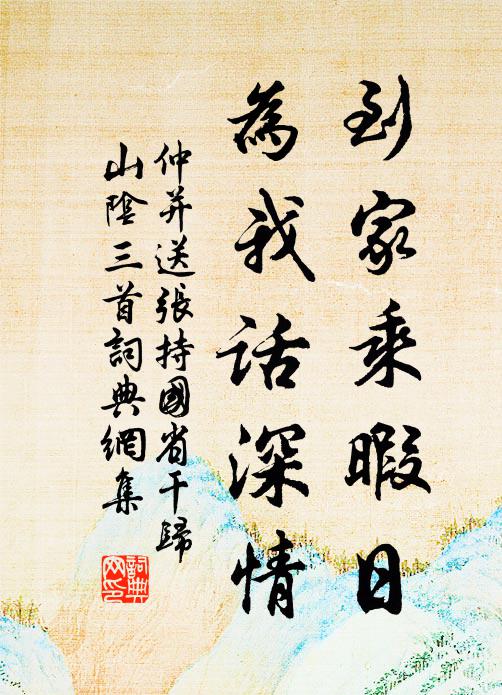 到家乘暇日
為我話深情
仲并送張持國省干歸
山陰三首詞典網集
詞典
网印